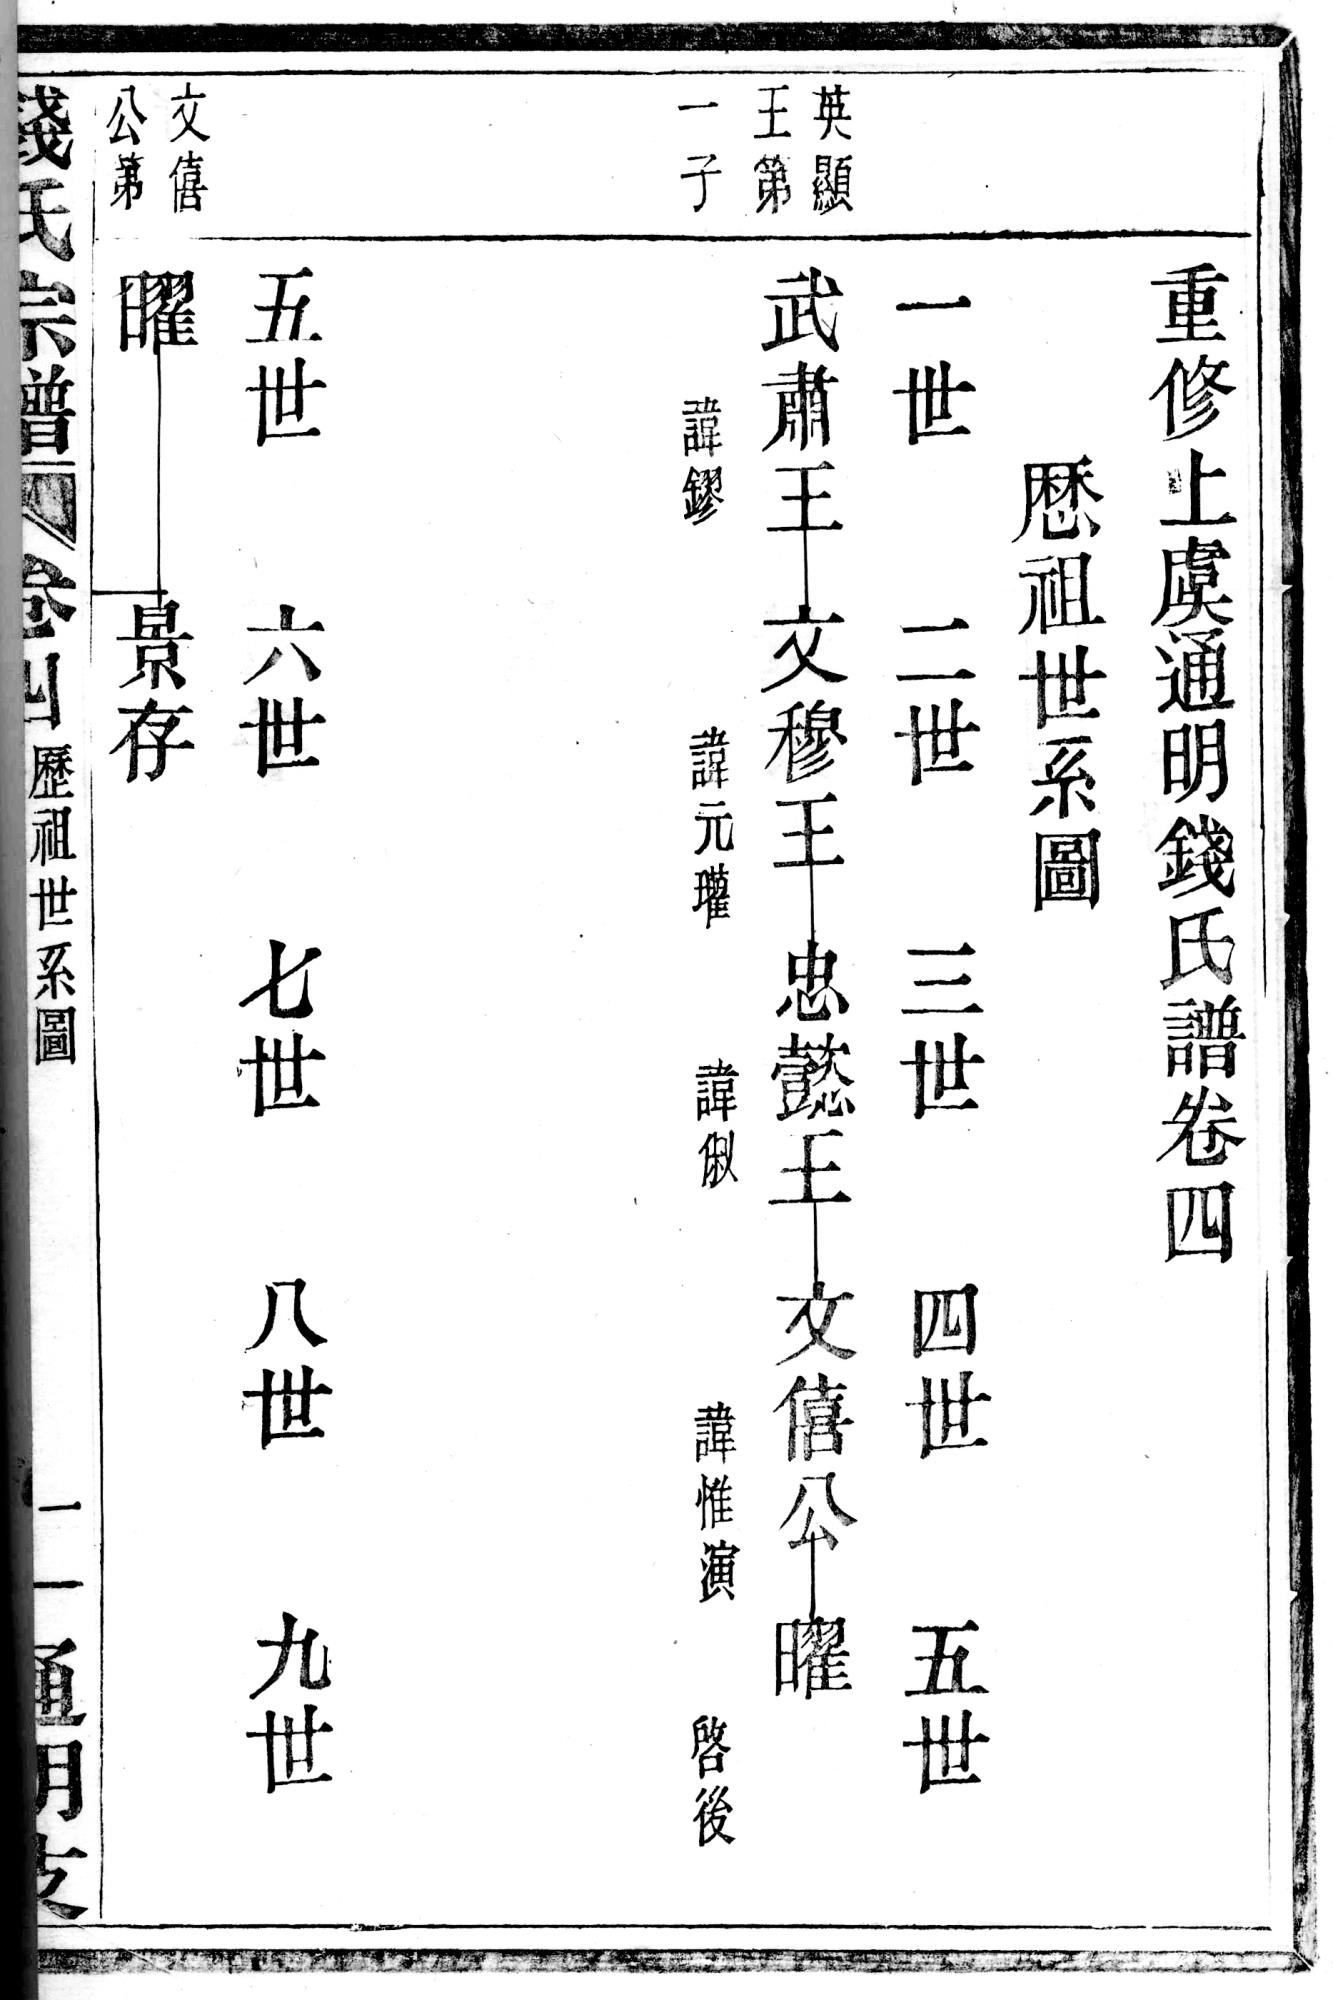 重修上虞通明錢氏譜卷四
歷祖世系圖
一世 二世 三世 四世 五世
英顯
王第
一子
武肅王 文穆王 忠懿王 文僖公 曜
諱鏐 諱元瓘 諱俶 諱惟演 啓後
五世 六世 七世 八世 九世
文僖
公第
曜 景存
錢氏宗譜 卷四 歷祖世系圖 一 通明支